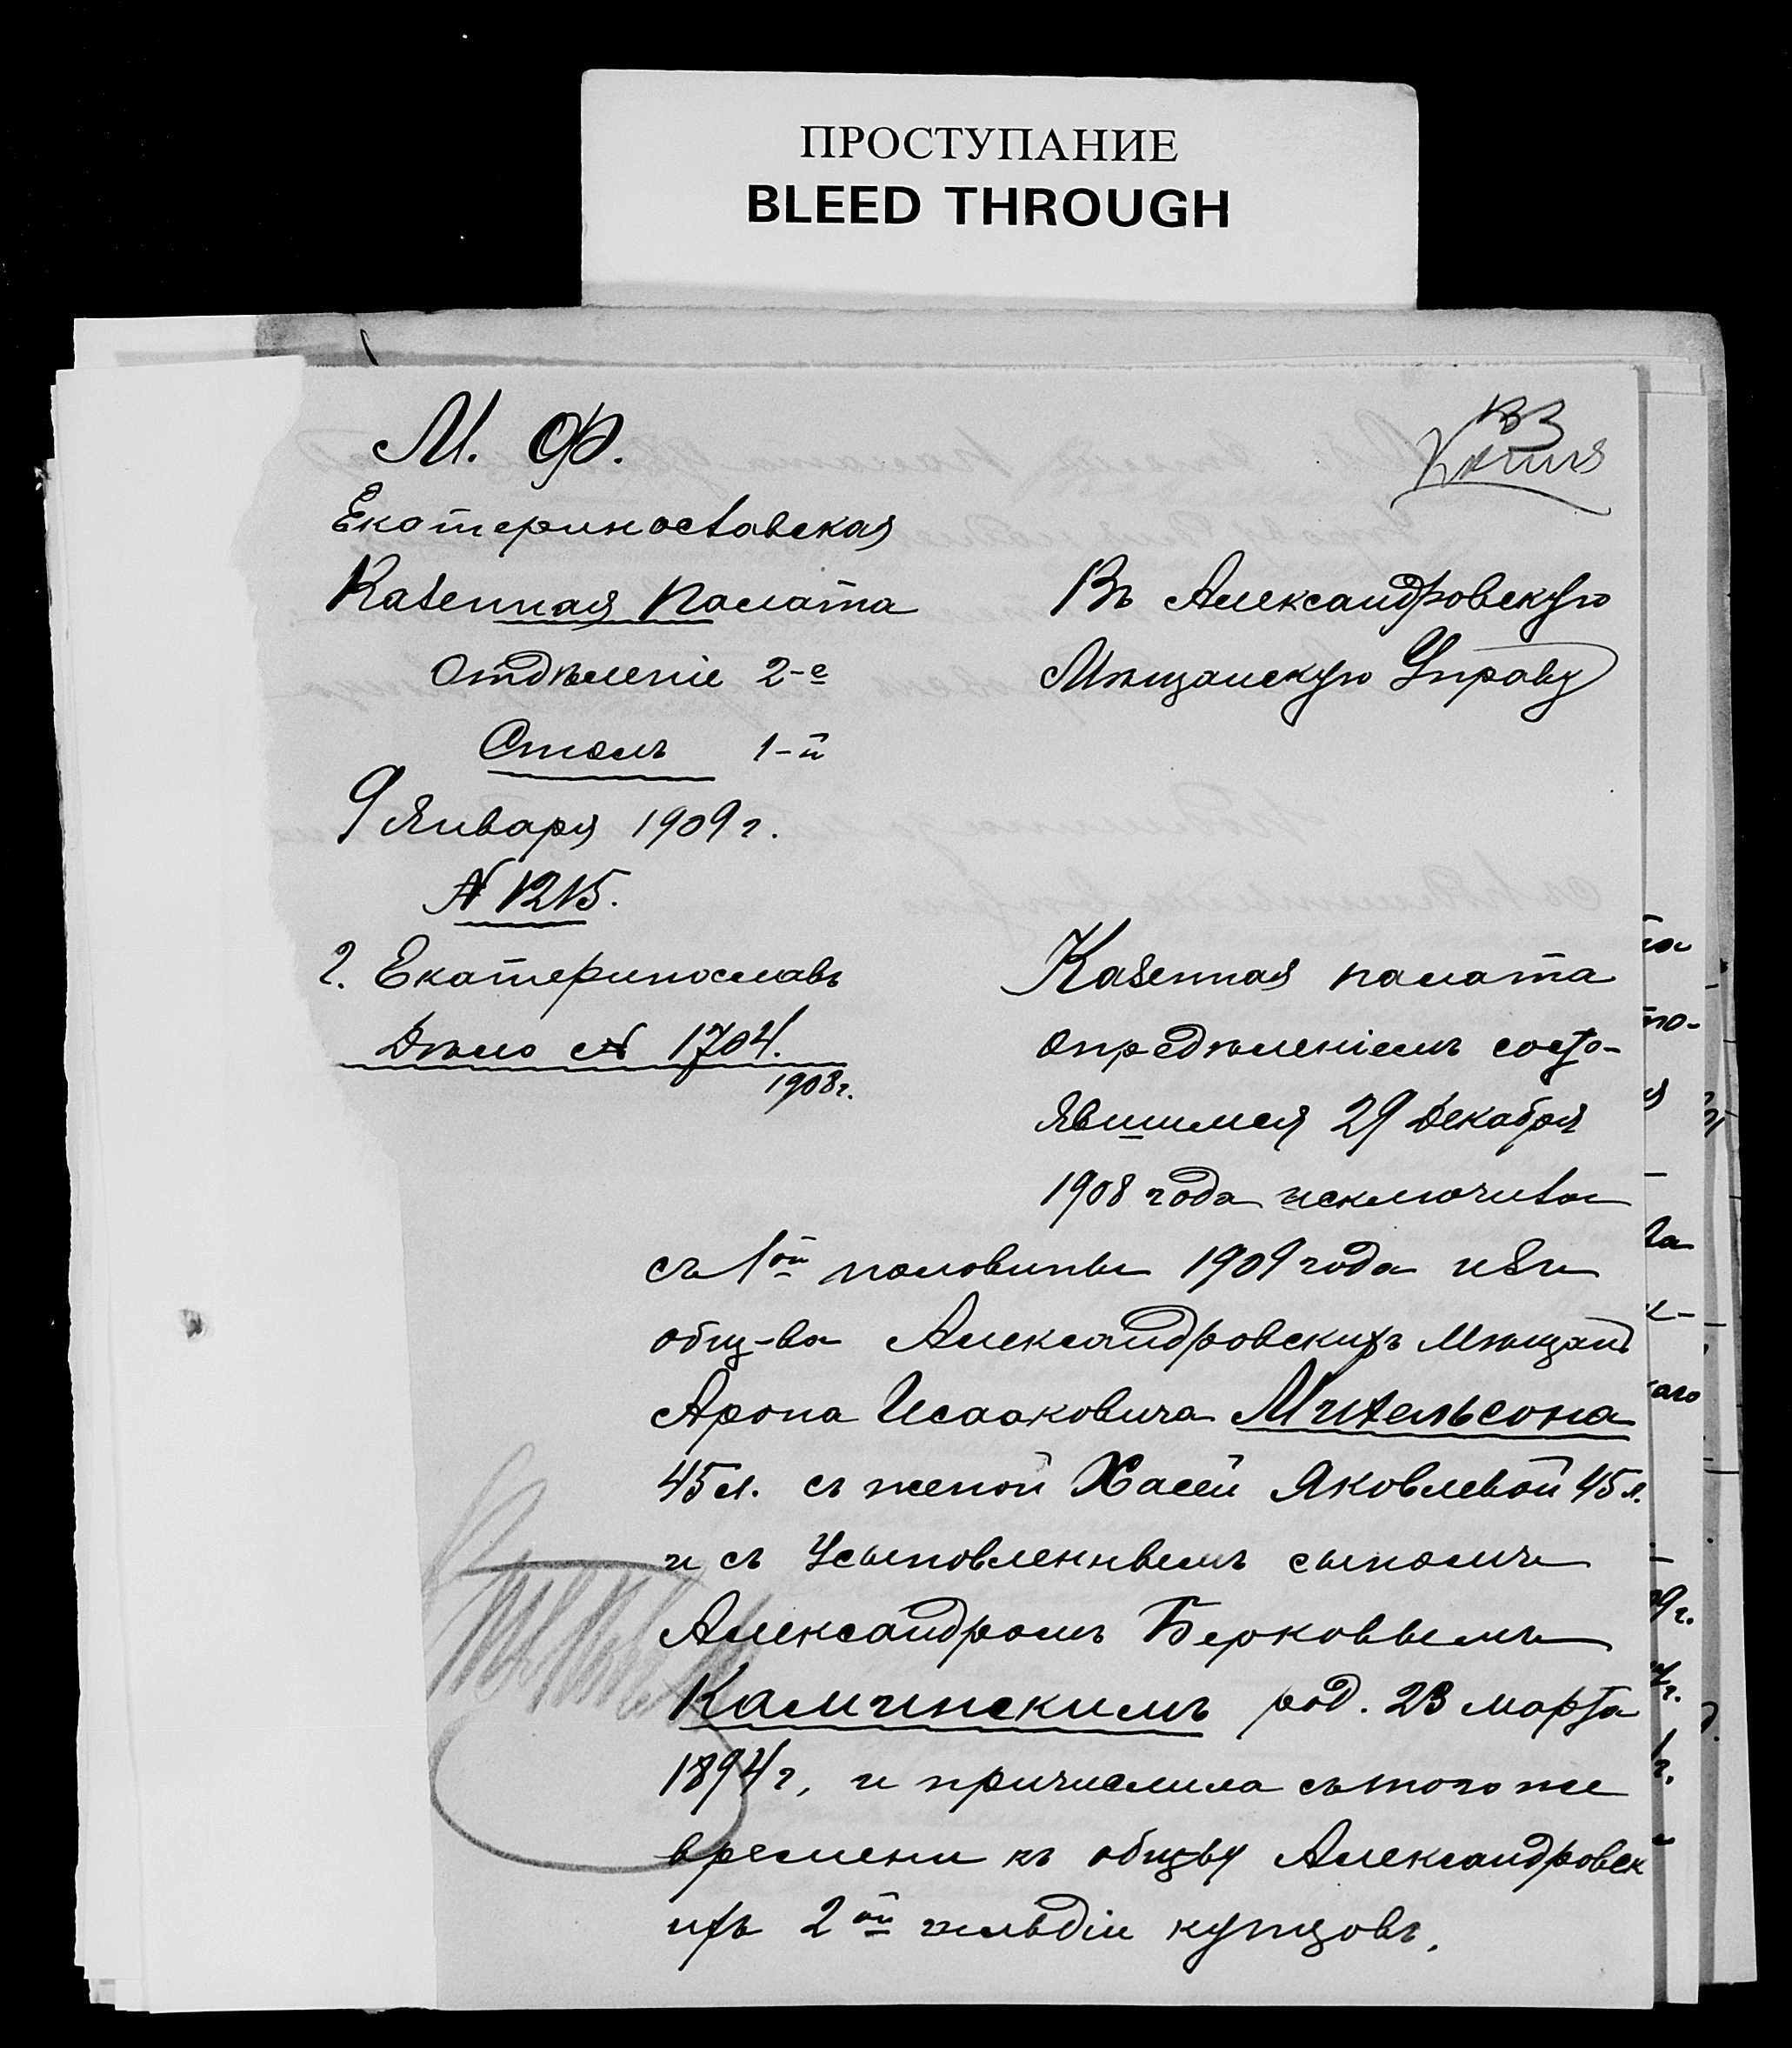 ПРОСТУПАНИЕ
BLEED THROUGH
133
Копия
М. Ф.
Екатеринославская
Казенная Палата
Отдѣленіе 2-е
Столъ 1-й
9 Января 1909 г.
№ 1215.
г. Екатеринославъ
Дѣло № 1704.
1908 г.
Въ Александровскую
Мѣщанскую Управу
Казенная палата
опредѣленіемъ состо-
явшимся 29 Декабря
1908 года исключила
съ 1ой половины 1909 года изъ
общ-ва Александровскихъ мѣщанъ
Арона Исааковича Михельсона
45 л. съ женой Хасей Яковлевой 45 л.
и съ усыновленнымъ сыномъ
Александромъ Берковымъ
Каминскимъ род. 23 марта
1894 г, и причислила съ того же
времени къ общву Александровск
ихъ 2ой гильдіи купцовъ.